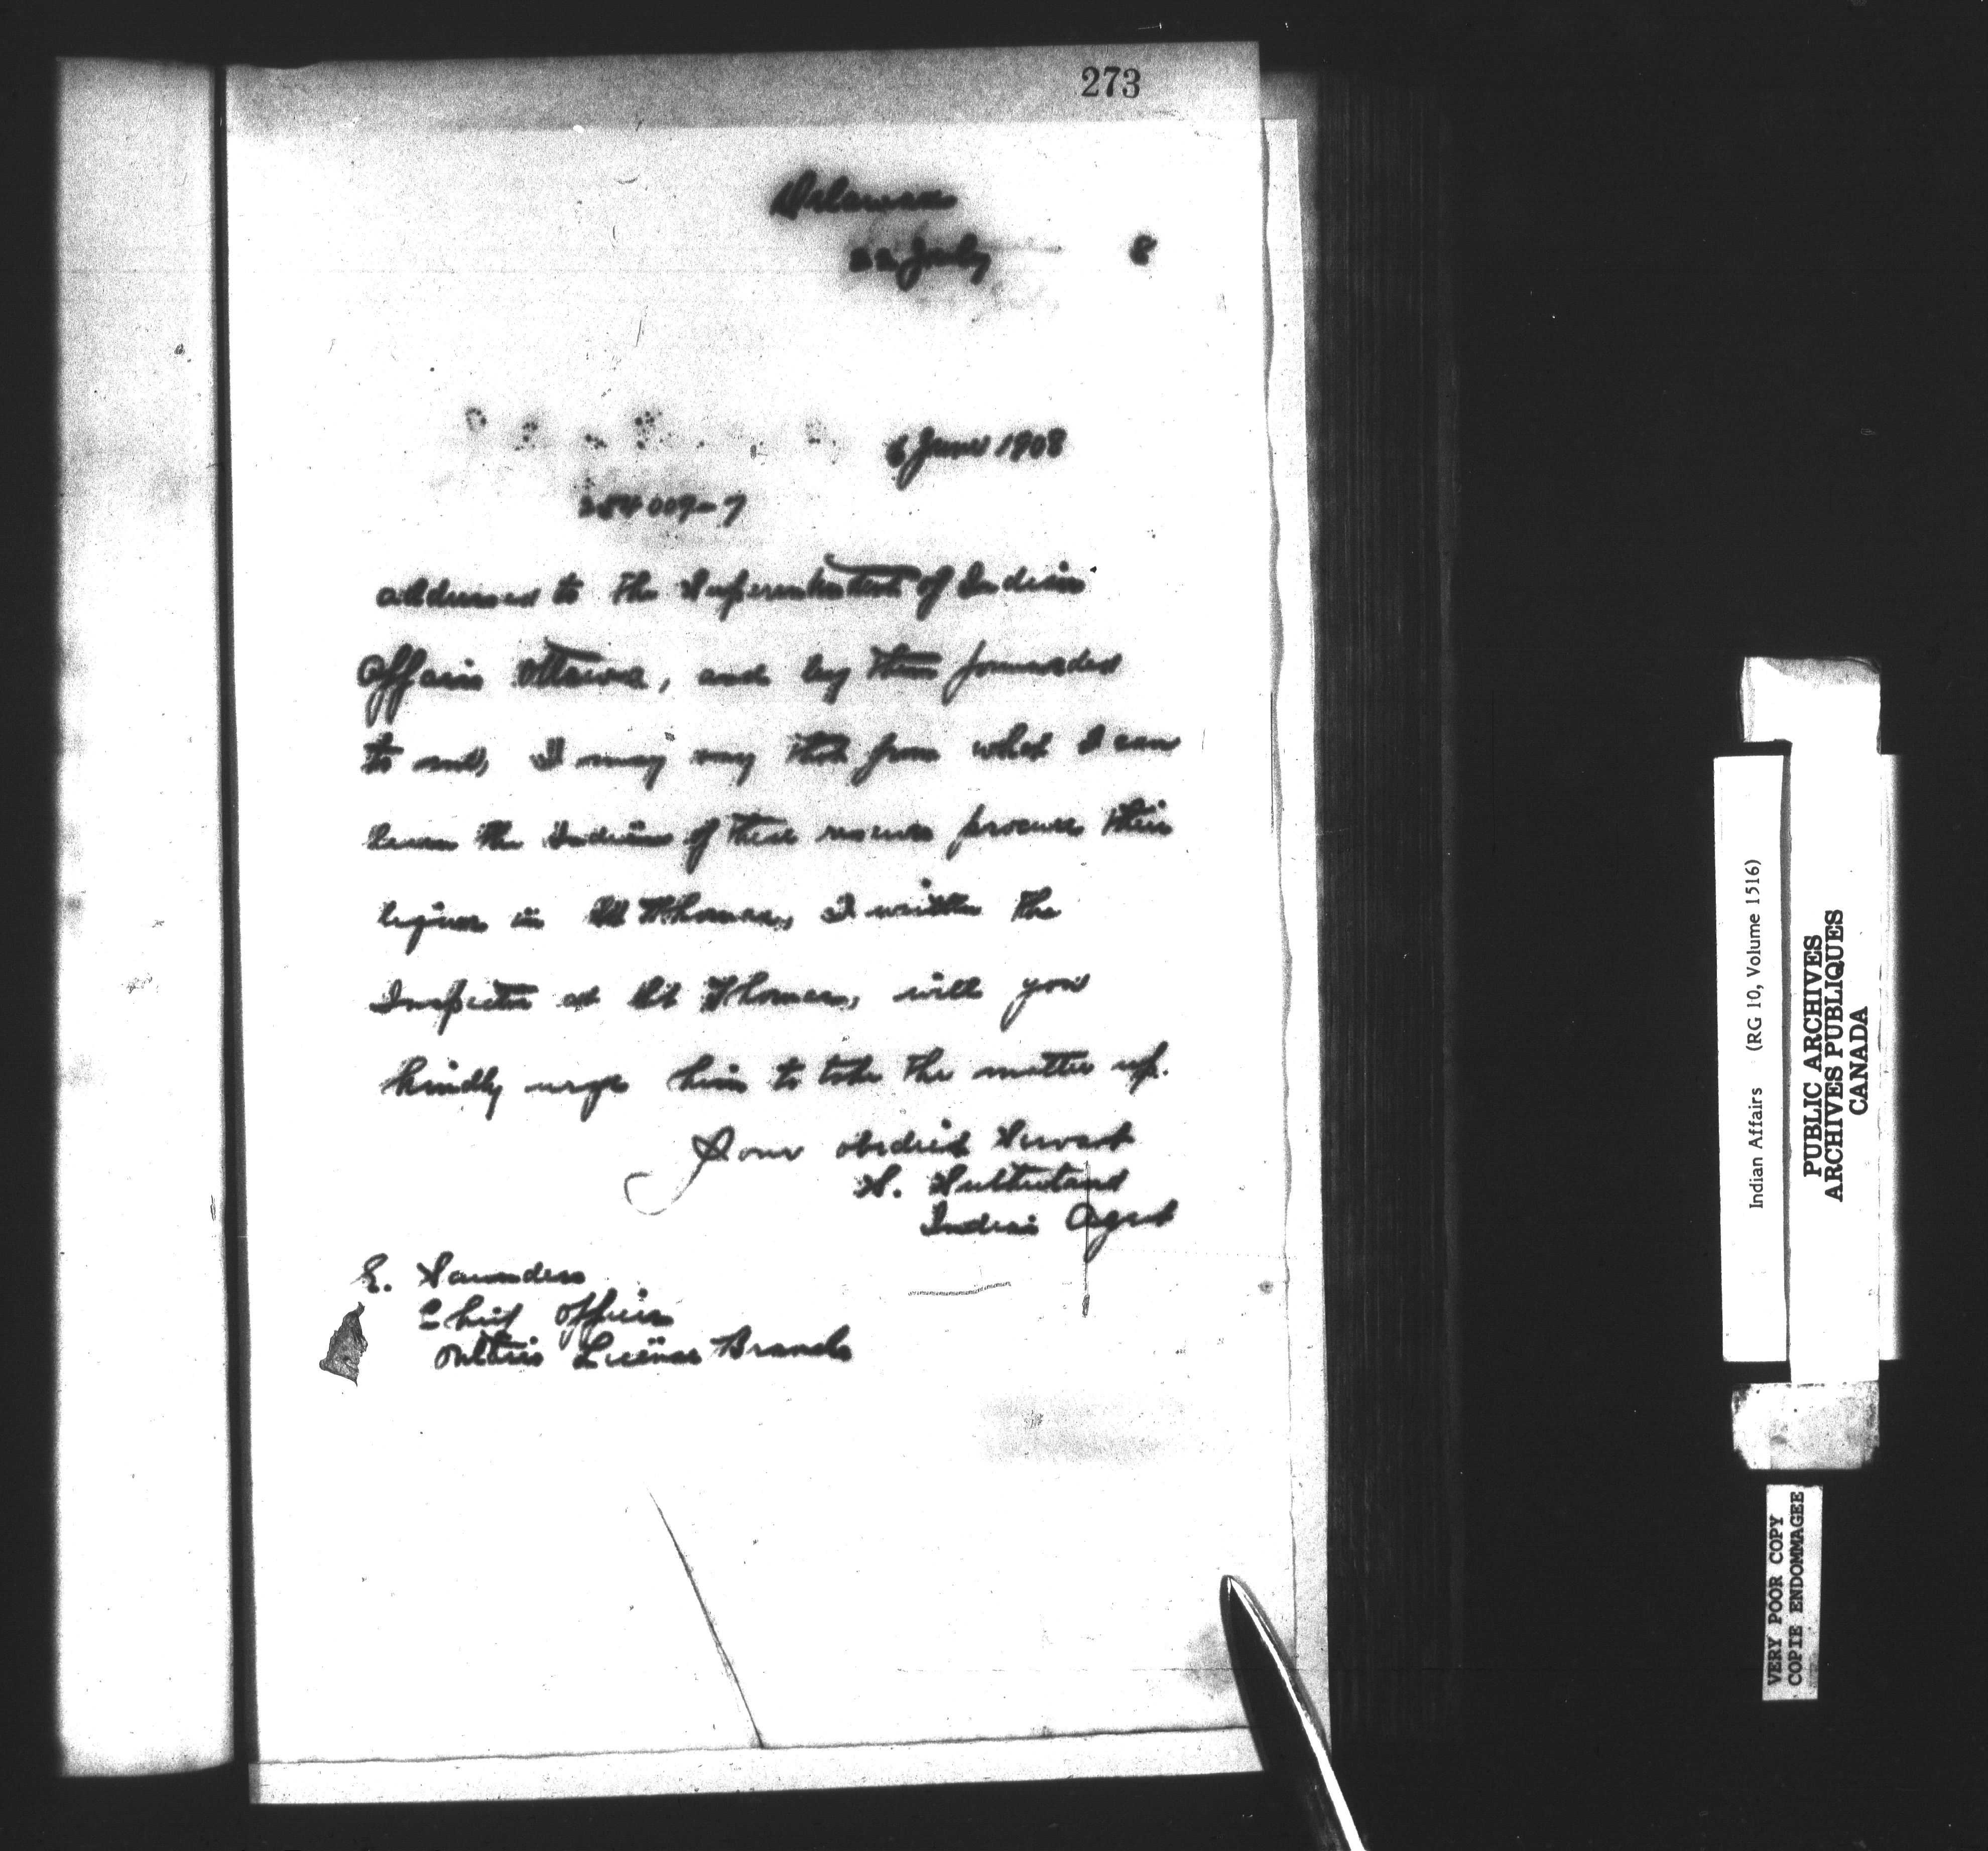 273
Delaware
22 July 8
6 June 1908
254007-7
addressed to the Superintendent of Indian
Affairs Ottawa, and by them forwarded
to me, I may say that from what I can
learn the Indians of these reserves procure their
liquor in St Thomas, I written the
Inspector at St Thomas, will you
kindly urge him to take the matter up.
Your obedient Servant
S. Sutherland
Indian Agent
E. Saunders
Chief Officer
Ontario License Branch
Indian Affairs (RG 10, Volume 1516)
PUBLIC ARCHIVES
ARCHIVES PUBLIQUES
CANADA
VERY POOR COPY
COPIE ENDOMMAGEE